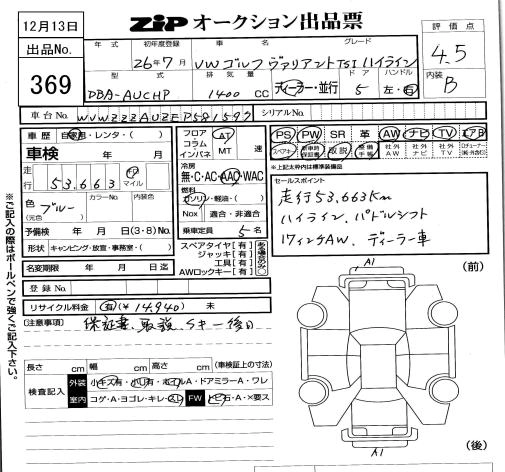 12月13日
出品No.
369
ZIP オークション出品票
評価点
4.5
内装
B
年式 初年度登録 車名 グレード
26年7月 VW ゴルフ ヴァリアント TSI ハイライン
型式 排気量 ドア ハンドル
DBA-AUCHP 1400 CC ディーラー・並行 5 左・右
車台No. WVWZZZAUZEP581597 シリアルNo.
車歴 自家用・レンタ・( )
車検 年 月
走行 53,663 km マイル
色 (元色) ブルー カラーNo. 内装色
予備検 年 月 日(3・8)No.
形状 キャンピング・放宣・事務室・( )
名変期限 年 月 日迄
登録No.
リサイクル料金 有(¥14,940) 未
フロア コラム インパネ AT MT 速
冷房
無・C・AC・AAC・WAC
燃料
ガソリン・軽油・( )
Nox 適合・非適合
乗車定員 5名
スペアタイヤ[有]
ジャッキ[有]
工具[有]
AWロックキー[有]
PS PW SR 革 AW ナビ TV エアB
スペアキー 新車時保証書 取説 整備手帳 社外AW 社外ナビ 社外TV
※上記太枠内は標準装備品
セールスポイント
走行53,663Km
ハイライン、パドルシフト
17インチAW、ディーラー車
[注意事項] 保証書、取説、Sキー後日
長さ cm 幅 cm 高さ cm (車検証上の寸法)
検査記入 外装 小キズ有・小凹有・ホイルA・ドアミラーA・ワレ
室内 コゲ・A・ヨゴレ・キレ・スレ FW トビ石・A・×要ス
A1
(前)
A1
(後)
※ご記入の際はボールペンで強くご記入下さい。